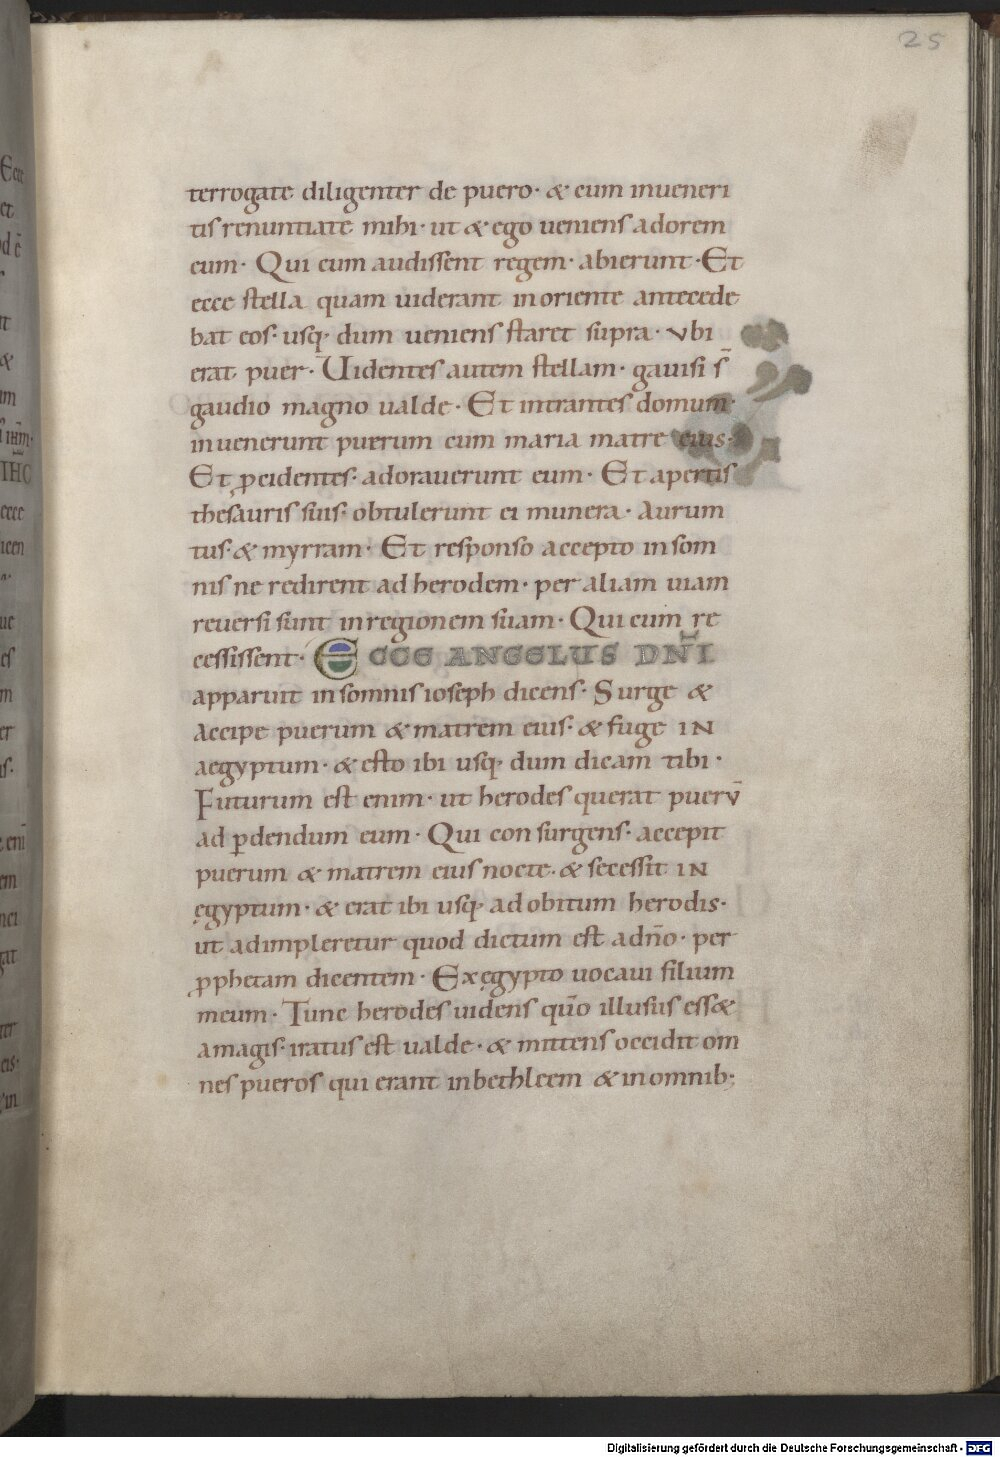 25
terrogate diligenter de puero· & cum inueneri
tis renuntiate mihi· ut & ego ueniens adorem
eum· Qui cum audissent regem· abierunt· Et
ecce stella quam uiderant in oriente antecede
bat eos· usq; dum ueniens staret supra· vbi
erat puer· Uidentes autem stellam· gauisi s̄
gaudio magno ualde· Et intrantes domum·
inuenerunt puerum cum maria matre eius·
Et ꝓcidentes· adorauerunt eum· Et apertis
thesauris suis· obtulerunt ei munera· Aurum
tus· & myrram· Et responso accepto in som
nis ne redirent ad herodem· per aliam uiam
reuersi sunt in regionem suam· Qui cum re
cessissent· ECCE ANGELUS DN̄I
apparuit in somnis ioseph dicens· Surge &
accipe puerum & matrem eius· & fuge IN
aegyptum· & esto ibi usq; dum dicam tibi·
Futurum est enim· ut herodes querat puerv̄
ad ꝑdendum eum· Qui consurgens· accepit
puerum & matrem eius nocte· & secessit IN
ęgyptum· & erat ibi usq; ad obitum herodis·
ut adimpleretur quod dictum est adn̄o· per
ꝓphetam dicentem· Ex ęgypto uocaui filium
meum· Tunc herodes uidens qūo illusus ess&
amagis· iratus est ualde· & mittens occidit om
nes pueros qui erant in bethleem & in omnib;
Digitalisierung gefördert durch die Deutsche Forschungsgemeinschaft - DFG